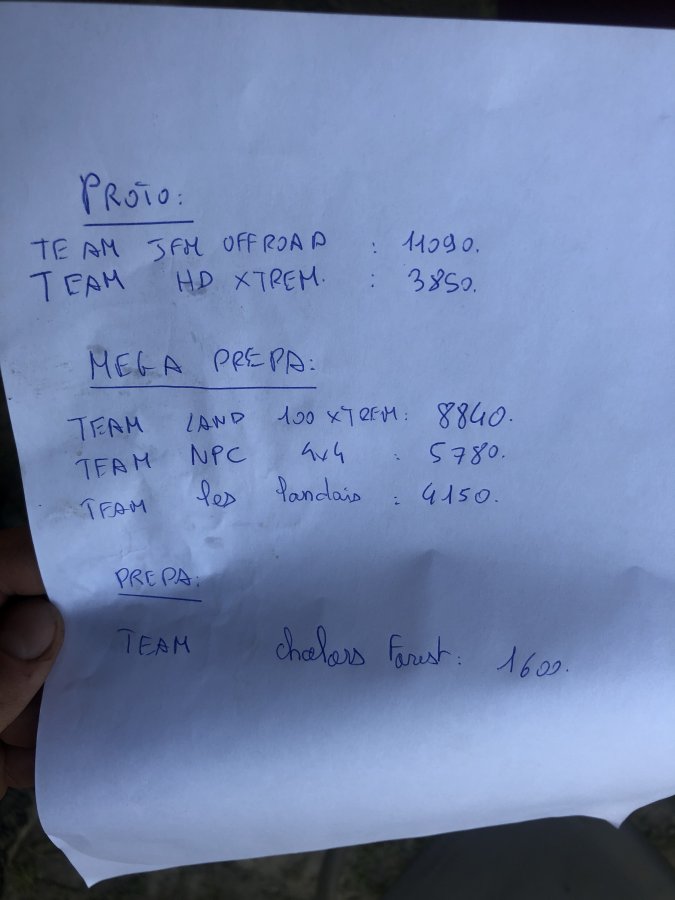 PROTO:
TEAM JFM OFFROAD : 11090.
TEAM HD XTREM. : 3850.
MEGA PREPA:
TEAM LAND 100 XTREM: 8840.
TEAM NPC 4x4 : 5780.
TEAM les landais : 4150.
PREPA:
TEAM Forest: 1600.